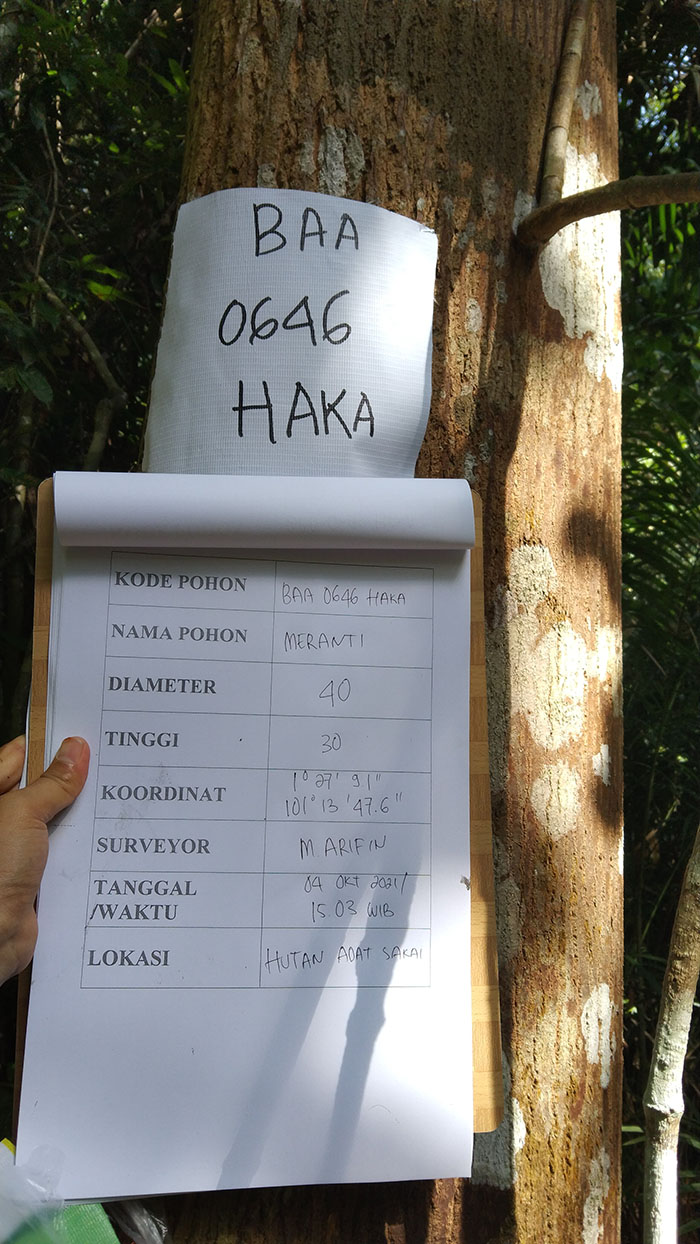 BAA
0646
HAKA
KODE POHON BAA 0646 HAKA
NAMA POHON MERANTI
DIAMETER 40
TINGGI 30
KOORDINAT 1° 27' 91"
101° 13 '47.6"
SURVEYOR M. ARIFIN
TANGGAL 04 OKT 2021/
/WAKTU 15.03 WIB
LOKASI HUTAN ADAT SAKAI